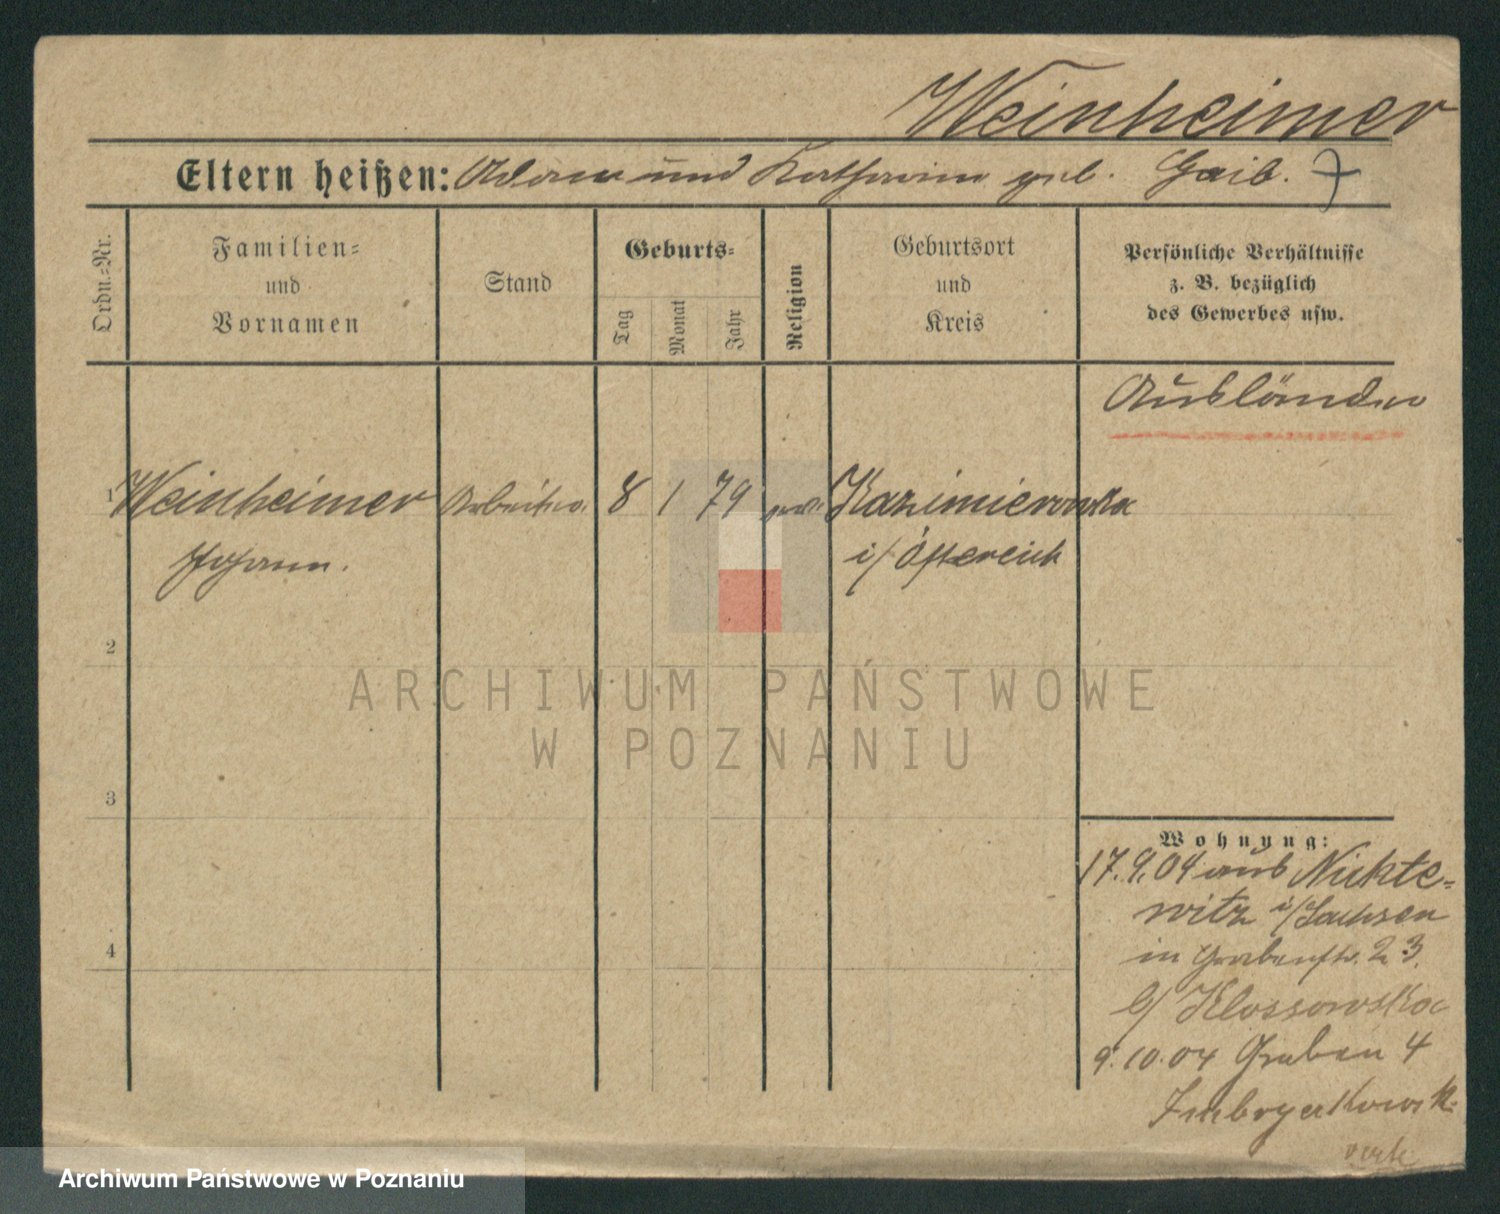 Weinheimer
Eltern heißen: Adam und Katharina geb. Gaib.
Ordn.=Nr.
Familien=
und
Vornamen
Stand
Geburts=
Tag
Monat
Jahr
Religion
Geburtsort
und
Kreis
Persönliche Verhältnisse
z. B. bezüglich
des Gewerbes usw.
Ausländer
1 Weinheimer Arbeiter 8 1 79 ev. Kazimierowka
Johann. i/ Östereich
2
3
4
Wohnung:
17.9.04 aus Nickte=
witz i/Sachsen
in Grabenstr. 23.
b/ Klossowska
9.10.04 Graben 4
ARCHIWUM PAŃSTWOWE
W POZNANIU
Archiwum Państwowe w Poznaniu